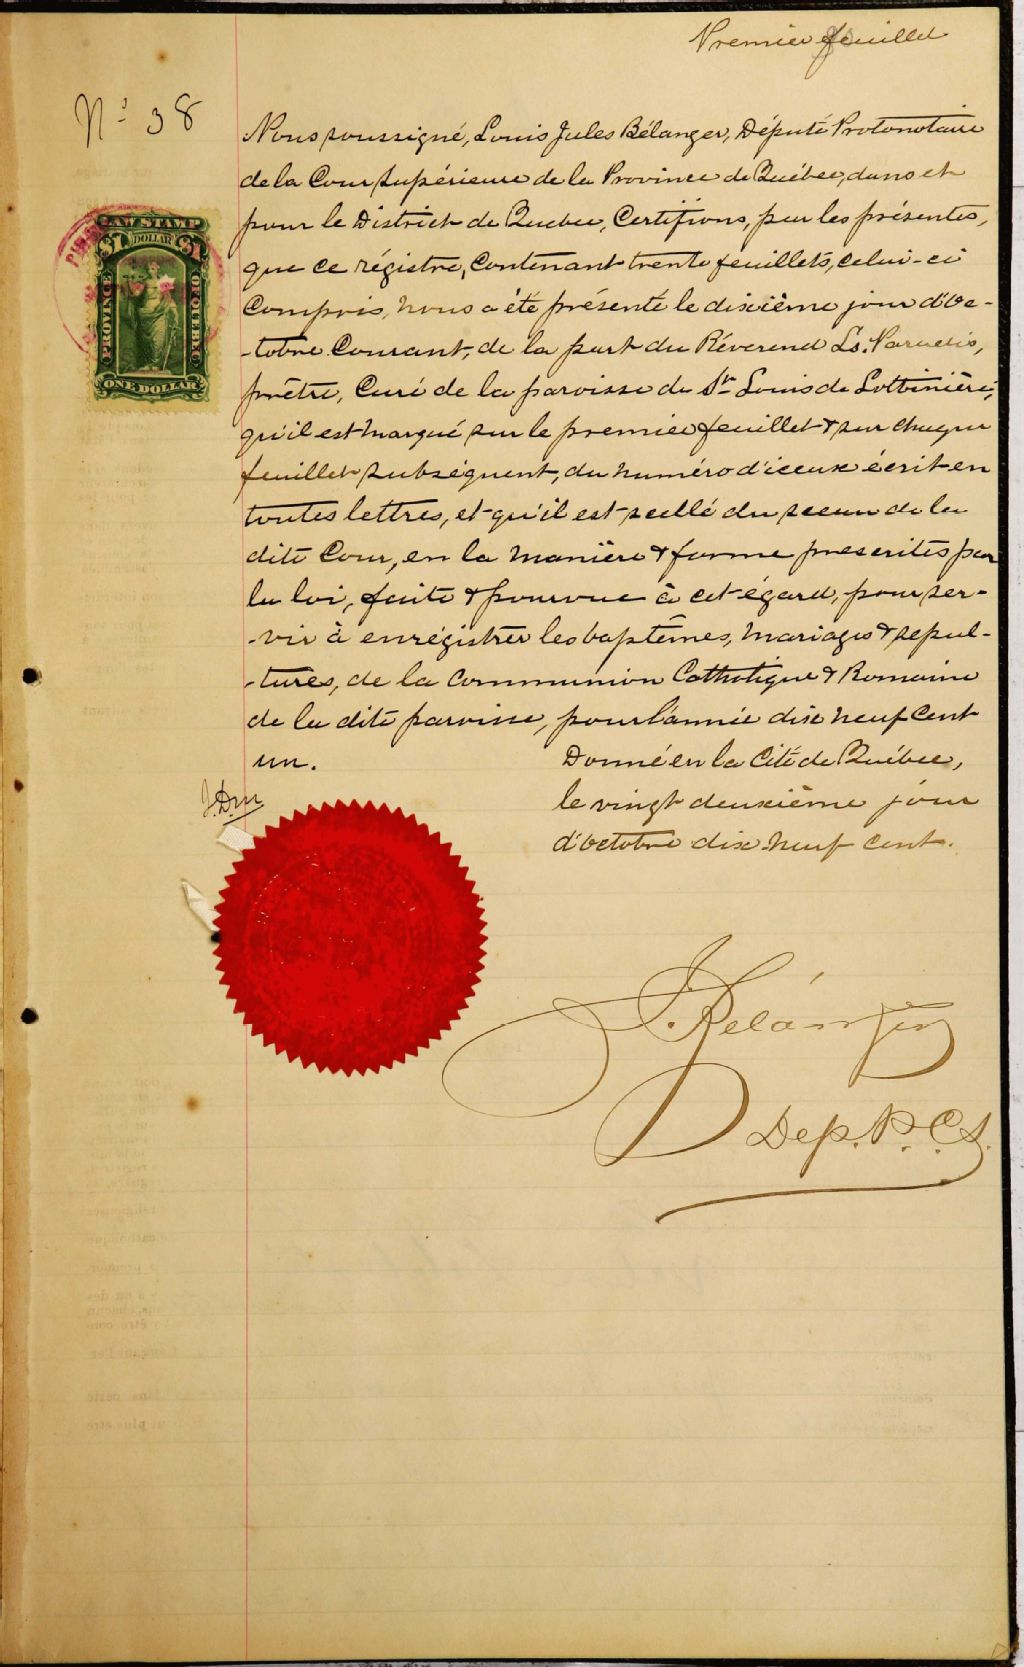 Premier feuillet
No 38
Nous soussigné, Louis Jules Bélanger, Député Protonotaire
de la Cour Supérieure de la Province de Québec, dans et
pour le District de Quebec, Certifions, par les présentes,
que ce régistre, contenant trente feuillets, celui-ci
compris, nous a été présenté le dixième jour d'Oc-
-tobre Courant, de la part du Réverend Ls. Paradis,
prêtre, Curé de la paroisse de St Louis de Lotbinière,
qu'il est marqué sur le premier feuillet & sur chaque
feuillet subséquent, du numéro d'iceux écrit en
toutes lettres, et qu'il est scellé du sceau de la
dite Cour, en la manière & forme prescrites par
la loi, faite & pourvue à cet égard, pour ser-
-vir à enrégistrer les baptêmes, mariages & sépul-
-tures, de la Communion Catholique & Romaine
de la dite paroisse, pour l'année dix neuf cent
un. Donné en la Cité de Québec,
le vingt deuxième jour
d'octobre dix neuf cent.
J. Bélanger
Dep. P. C. S.
LAW STAMP
$1 DOLLAR $1
PROVINCE OF QUEBEC
ONE DOLLAR